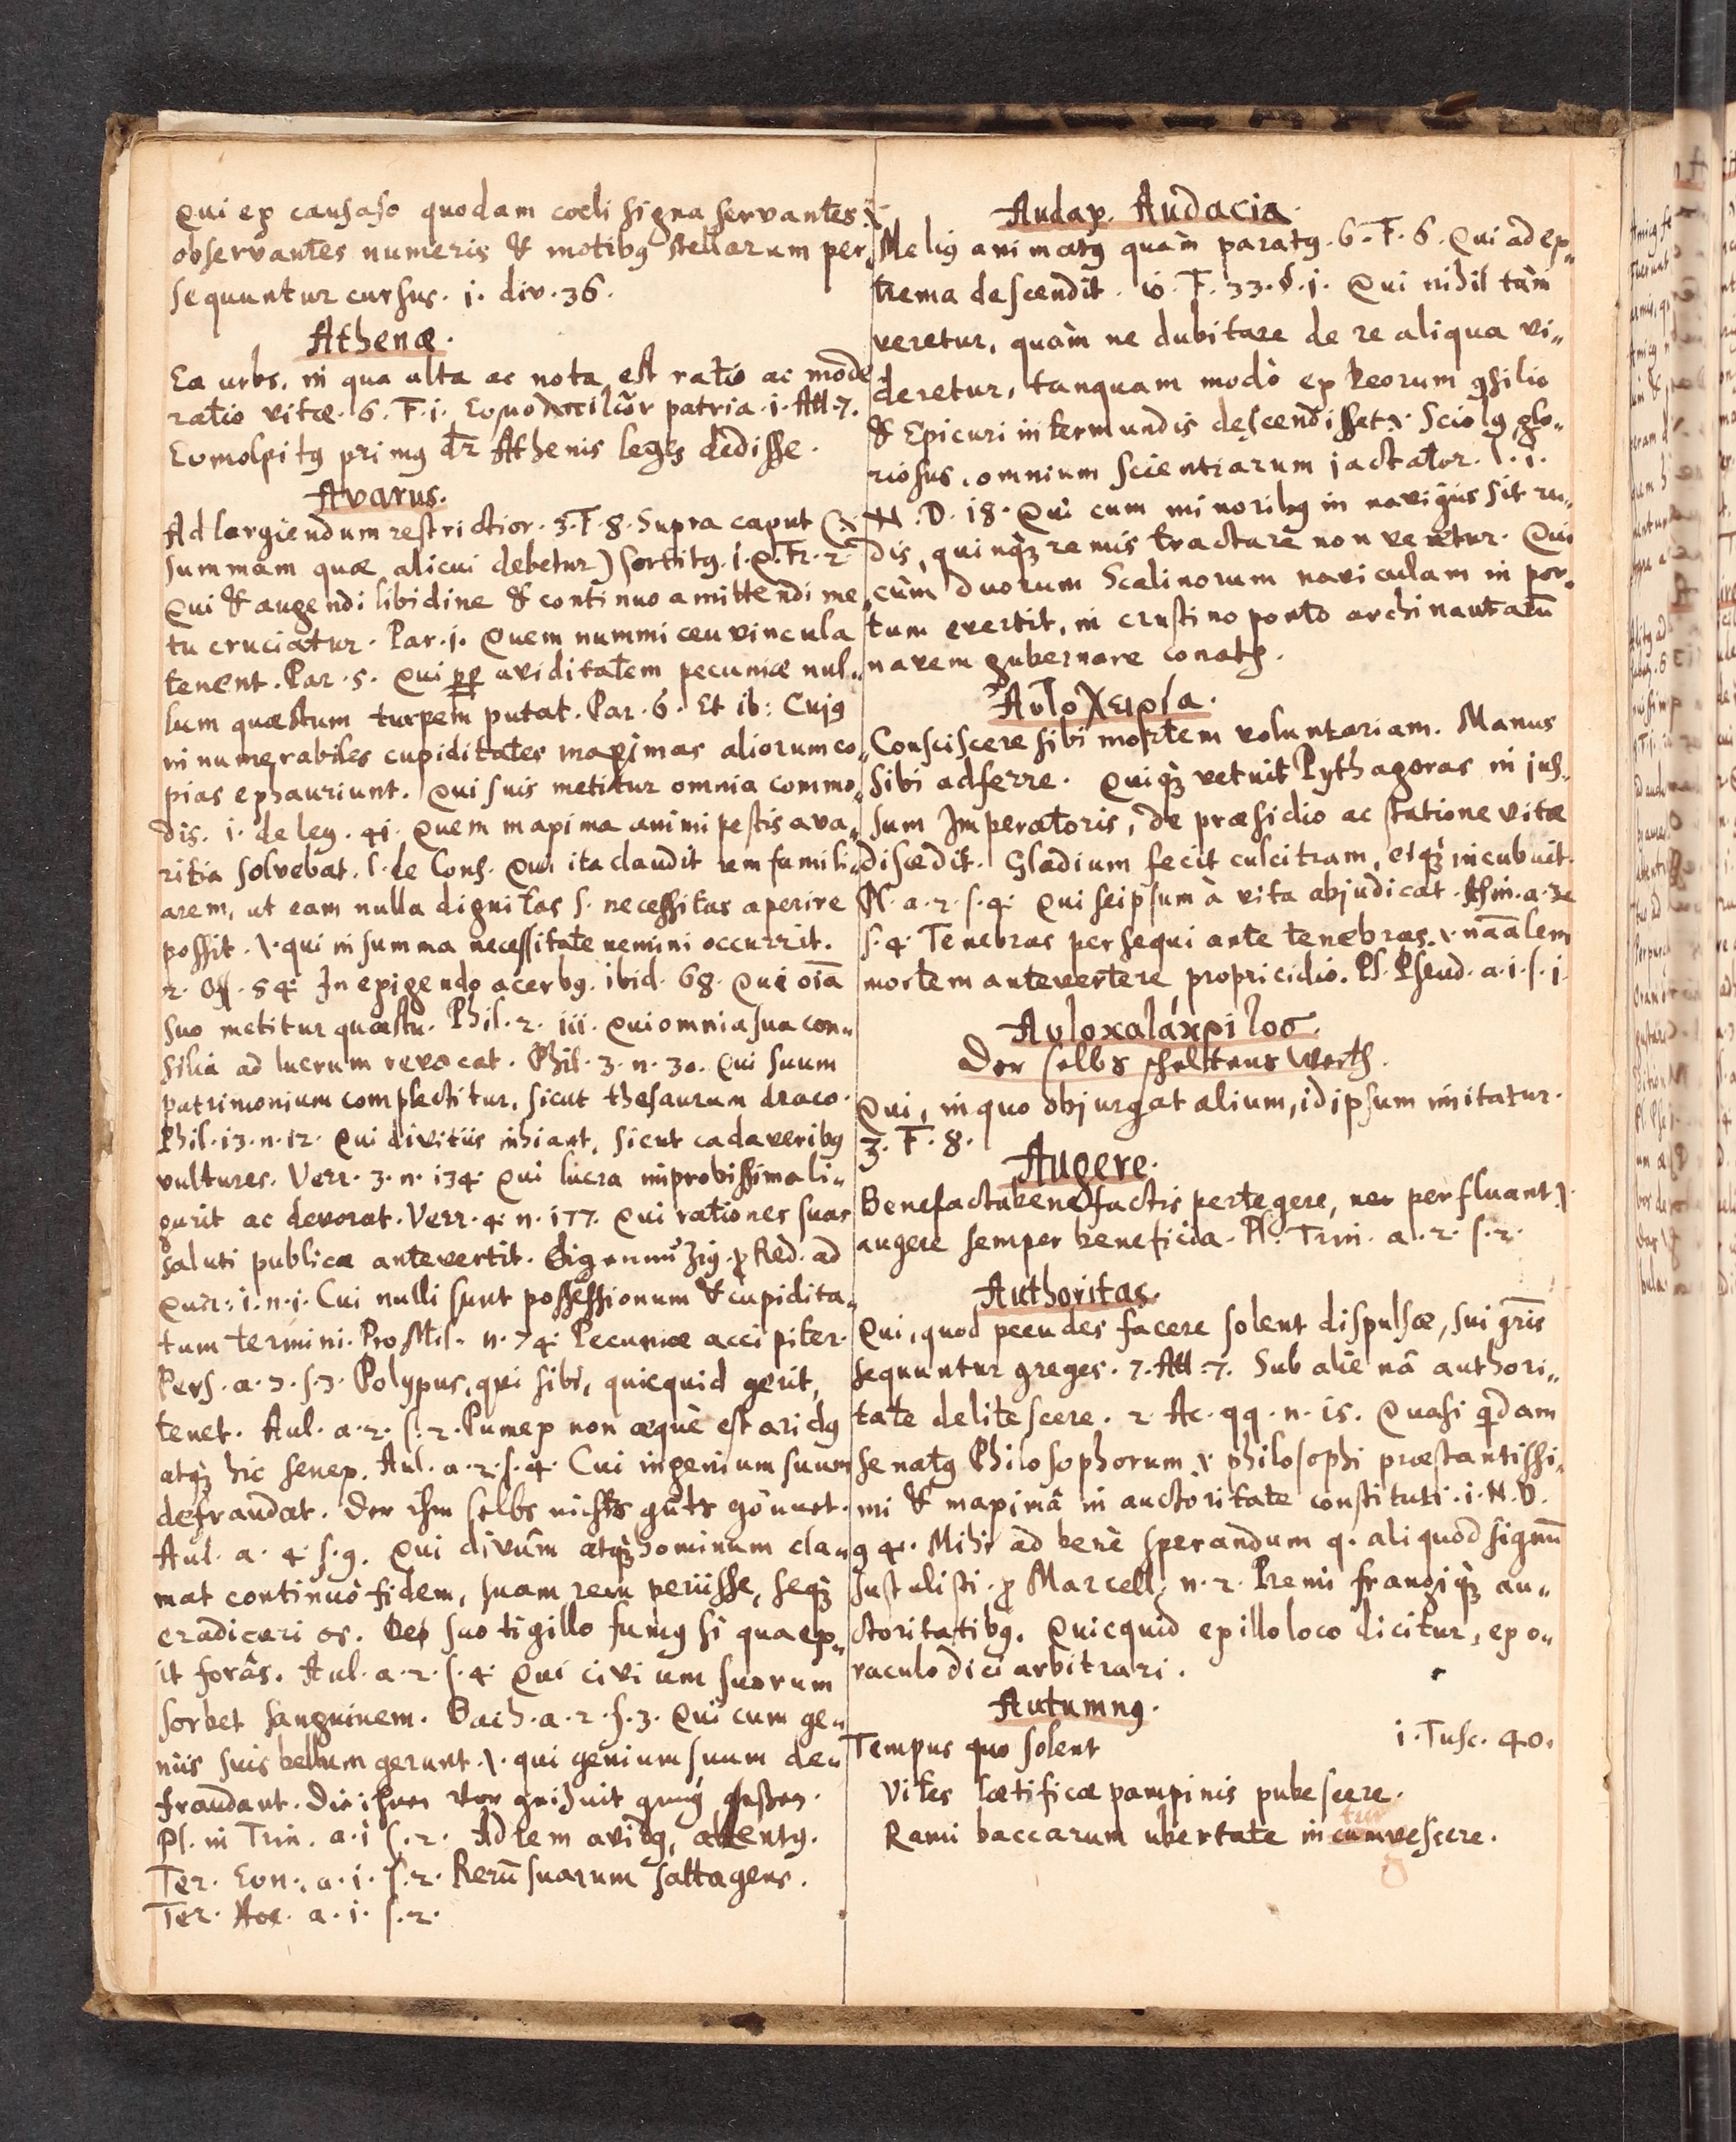 Qui ex causaso quodam coeli signa servantes .\.
observantes numeris & motibꝯ stellarum per„
sequuntur cursus. i. div. 36.
Athenæ.
Ea urbs, in qua alta ac nota est ratio ac mode
ratio vitæ. 6. F. i. patria. i. Att. 7.
Eumolpitꝯ primꝯ dr̄ Athenis leges dedisse.
Avarus.
Ad largiendum restrictior. 3. F. 8. Supra caput (.\.
summam quæ alicui debetur) sortitꝯ. i. Q. Fr. 2
Qui & augendi libidine & continuo amittendi me„
tu cruciatur. Par. i. Quem nummi ceu vincula
tenent. Par. 5. Qui ꝓꝑ aviditatem pecuniæ nul„
lum quæstum turpem putat. Par. 6. Et ib: Cujꝯ
innumerabiles cupiditates maximas aliorum co„
pias exhauriunt. Qui suis metitur omnia commo„
dis. i. de leg. 41. Quem maxima animi pestis ava„
ritia solvebat. l. de Cons. Qui ita claudit rem famili„
arem, ut eam nulla dignitas s. necessitas aperire
possit. .\. qui in summa necessitate nemini occurrit.
2. Off. 54. In exigendo acerbꝯ. ibid. 68. Qui oīa
suo metitur quæstu. Phil. 2. iii. Qui omnia sua con„
silia ad lucrum revocat. Phil. 3. n. 30. Qui suum
patrimonium complectitur, sicut thesaurum draco.
Phil. 13. n. 12. Qui divitiis inhiant, sicut cadaveribꝯ
vultures. Verr. 3. n. 134. Qui lucra improbissima li„
gurit ac devorat. Verr. 4. n. 177. Qui rationes suas
saluti publicæ antevertit. ꝓ Red. ad
Quir: i. n. i. Cui nulli sunt possessionum & cupidita„
tum termini. Pro Mil. n. 74. Pecuniæ accipiter.
Pers. a. 3. s. 3. Polypus, qui sibi, quicquid gerit,
tenet. Aul. a. 2. s. 2. Pumex non æquè est aridꝯ
atqꝫ hic senex. Aul. a. 2. s. 4. Cui ingenium suum
defraudat. Der ihm selbs nichts guts gönnet.
Aul. a. 4. s. 9. Qui divûm atqꝫ hominum cla„
mat continuò fidem, suam rem periisse, seqꝫ
eradicari os. Des suo tigillo fumꝯ si qua ex„
it forâs. Aul. a. 2. s. 4. Qui civium suorum
sorbet sanguinem. Bach. a. 2. s. 3. Qui cum ge„
niis suis bellum gerunt .\. qui genium suum de„
fraudant. Die ihnen vor
Pl. in Trin. a. i. s. 2. Ad rem avidꝯ, attentꝯ.
Ter. Eun. a. i. s. 2. Rerū suarum sattagens.
Ter. a. i. s. 2.
Audax. Audacia.
Meliꝯ animatꝯ quàm paratꝯ. 6. F. 6. Qui ad ex„
trema descendit. 10. F. 33. & i. Qui nihil tàm
veretur, quàm ne dubitare de re aliqua vi„
deretur, tanquam modò ex Deorum ꝯsilio
& Epicuri intermundis descendisset .\. Sciolꝯ glo„
riosus, omnium scientiarum jactator. l. i.
N. D. 18. Qui cum minoribꝯ in navigiis sit ru„
dis, quinqꝫ remis tractare non veretur. Qui
cùm duorum Scalmorum naviculam in por„
tum evertit, in eustino ponto archinautarū
navem gubernare conatꝯ.
Αὐτοχειρία.
Consciscere sibi mortem voluntariam. Manus
sibi adferre. Quiqꝫ vetuit Pythagoras in jus„
sum Imperatoris, de præsidio ac statione vitæ
discedit. Gladium fecit culcitram, eiqꝫ incubuit.
a. 2. s. 4. Qui seipsum à vita abjudicat. Asin. a. 3
s. 4. Tenebras persequi ante tenebras .\. nāālem
mortem antevertere propricidio. Pl. Pseud. a. i. s. i.
Αὐτοκατάκριτος.
Der selbs scheltens werth.
Qui, in quo objurgat alium, id ipsum imitatur.
3. F. 8.
Augere.
Benefacta benefactis pertegere, nec perfluant .\.
augere semper beneficia. Pl. Trin. a. 2. s. 2.
Authoritas.
Qui, quod pecudes facere solent dispulsæ, sui gn̄ris
sequuntur greges. 7. Att. 7. Sub alienâ authori„
tate delitescere. 2. Ac. qq. n. 15. Quasi qͥdam
senatꝯ Philosophorum .\. philosophi præstantissi„
mi & maximâ in auctoritate constituti. i. N. D.
94. Mihi ad benè sperandum q. aliquod signū
sustulisti. ꝓ Marcell. n. 2. Premi frangiqꝫ au„
ctoritatibꝯ. Quicquid ex illo loco dicitur, ex o„
raculo dici arbitrari.
Autumnꝯ.
Tempus quo solent i. Tusc. 40.
Vites lætificæ pampinis pubescere.
Rami baccarum ubertate incurvescere.